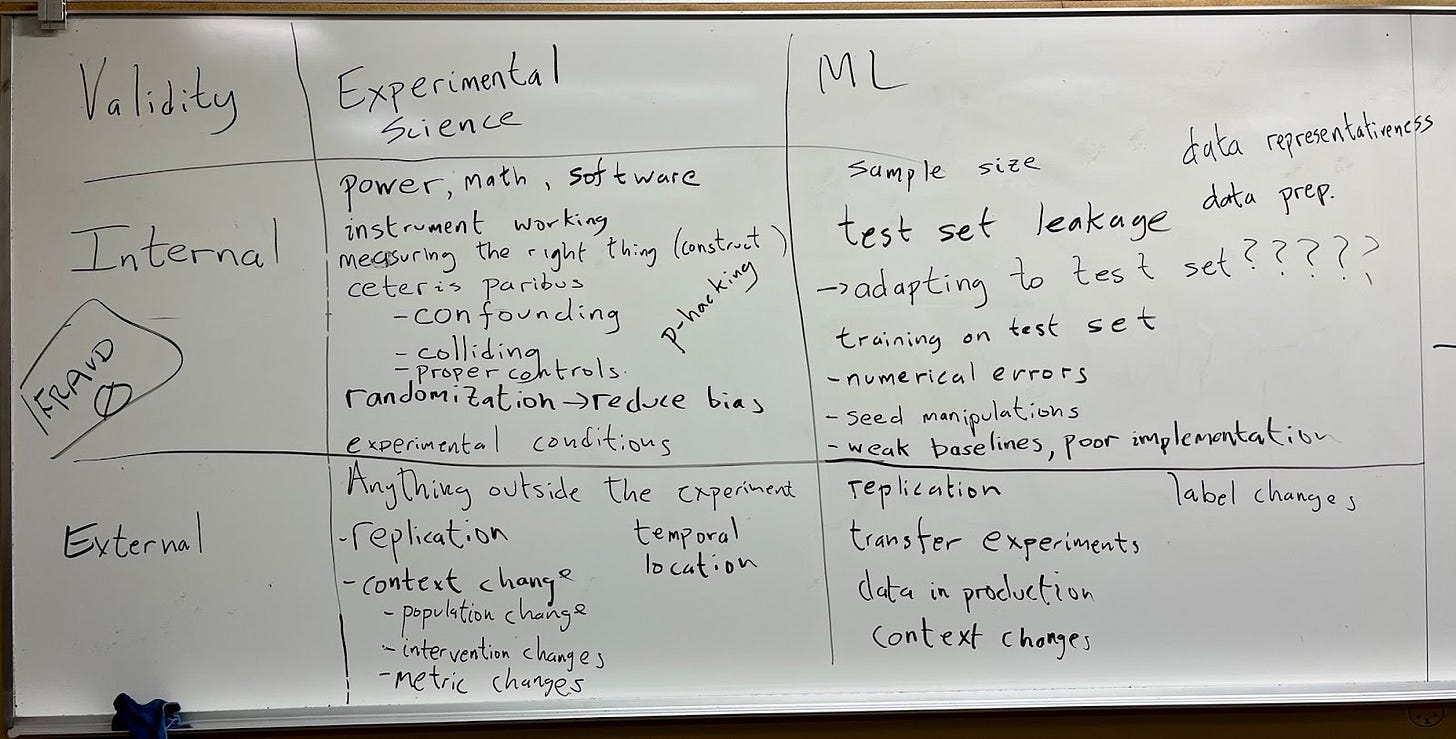 Validity
Experimental
Science
ML
Internal
power, math, software
instrument working
measuring the right thing (construct)
ceteris paribus
- confounding
- colliding
- proper controls.
p-hacking
randomization → reduce bias
experimental conditions
sample size
data representativeness
data prep.
test set leakage
→ adapting to test set?????
training on test set
- numerical errors
- seed manipulations
- weak baselines, poor implementation
FRAUD
External
Anything outside the experiment
- replication
temporal
location
- context change
- population change
- intervention changes
- metric changes
replication
label changes
transfer experiments
data in production
context changes